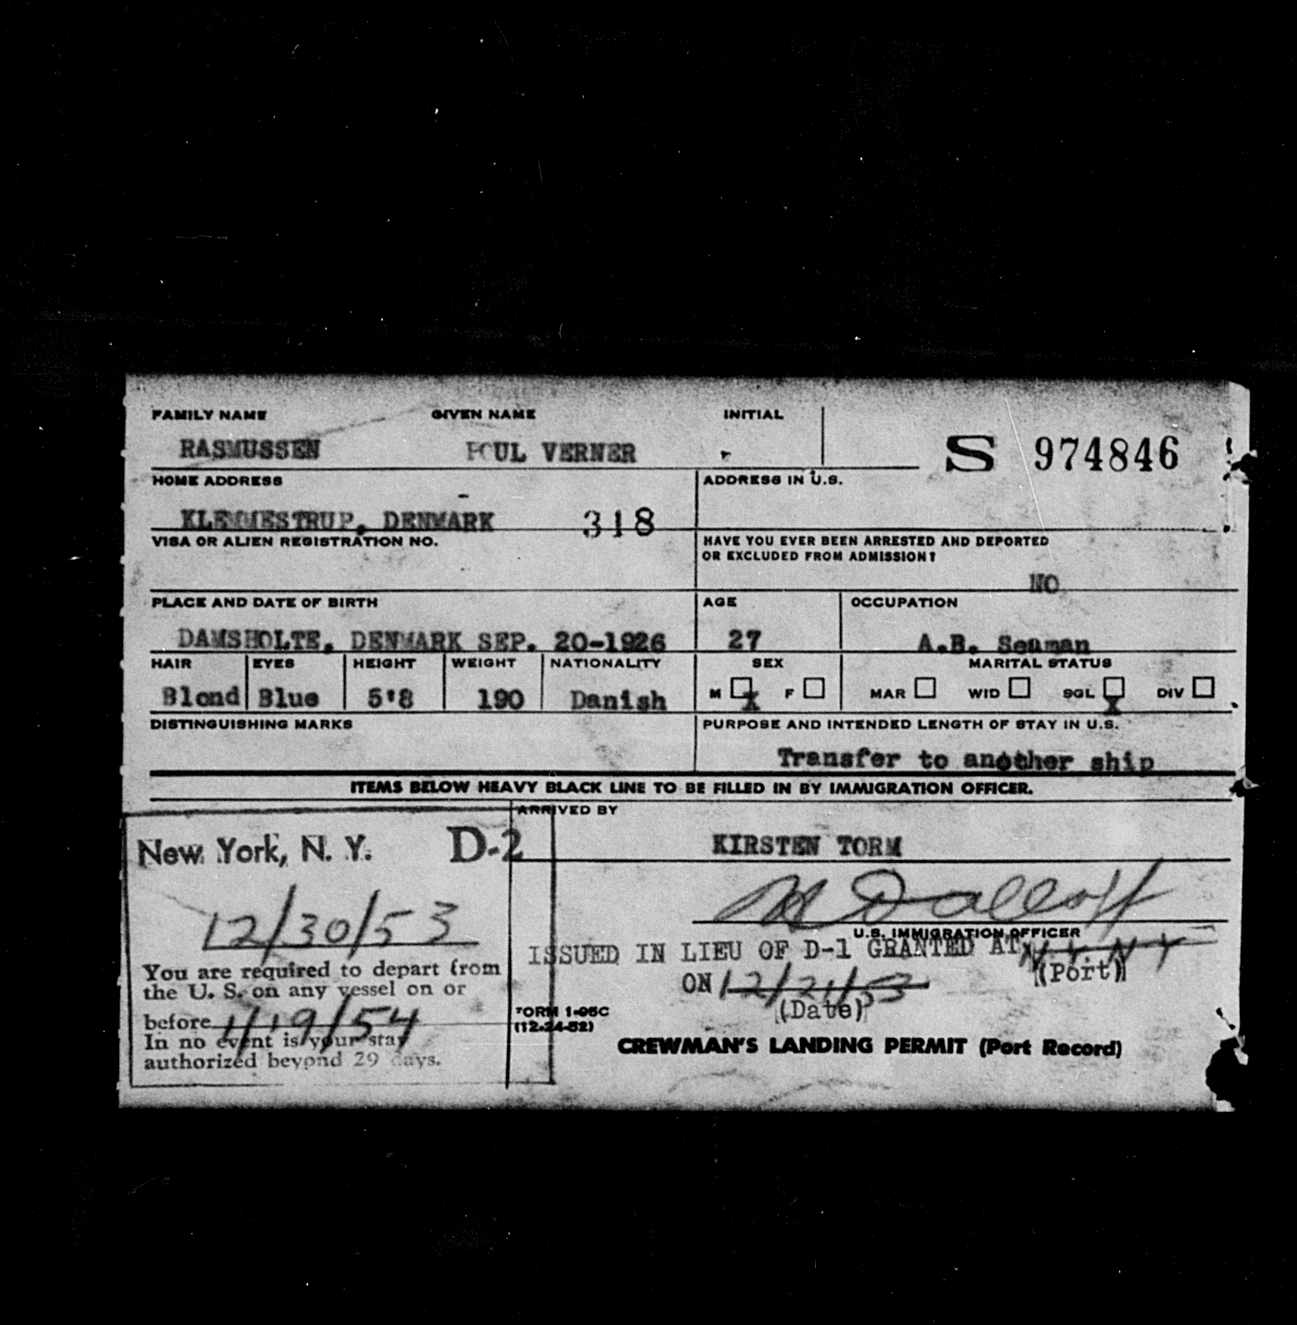 FAMILY NAME GIVEN NAME INITIAL
RASMUSSEN POUL VERNER S 974846
HOME ADDRESS ADDRESS IN U.S.
KLEMMESTRUP, DENMARK 318
VISA OR ALIEN REGISTRATION NO. HAVE YOU EVER BEEN ARRESTED AND DEPORTED
OR EXCLUDED FROM ADMISSION?
NO
PLACE AND DATE OF BIRTH AGE OCCUPATION
DAMSHOLTE, DENMARK SEP. 20-1926 27 A.B. Seaman
HAIR EYES HEIGHT WEIGHT NATIONALITY SEX MARITAL STATUS
Blond Blue 5'8 190 Danish M X F MAR WID SGL X DIV
DISTINGUISHING MARKS PURPOSE AND INTENDED LENGTH OF STAY IN U.S.
Transfer to another ship
ITEMS BELOW HEAVY BLACK LINE TO BE FILLED IN BY IMMIGRATION OFFICER.
ARRIVED BY
New York, N. Y. D-2 KIRSTEN TORM
12/30/53
U.S. IMMIGRATION OFFICER
ISSUED IN LIEU OF D-1 GRANTED AT N Y N Y
(Port)
ON 12/21/53
(Date)
You are required to depart from
the U. S. on any vessel on or
before 1/19/54
In no event is your stay
authorized beyond 29 days.
FORM I-95C
(12-24-52)
CREWMAN'S LANDING PERMIT (Port Record)